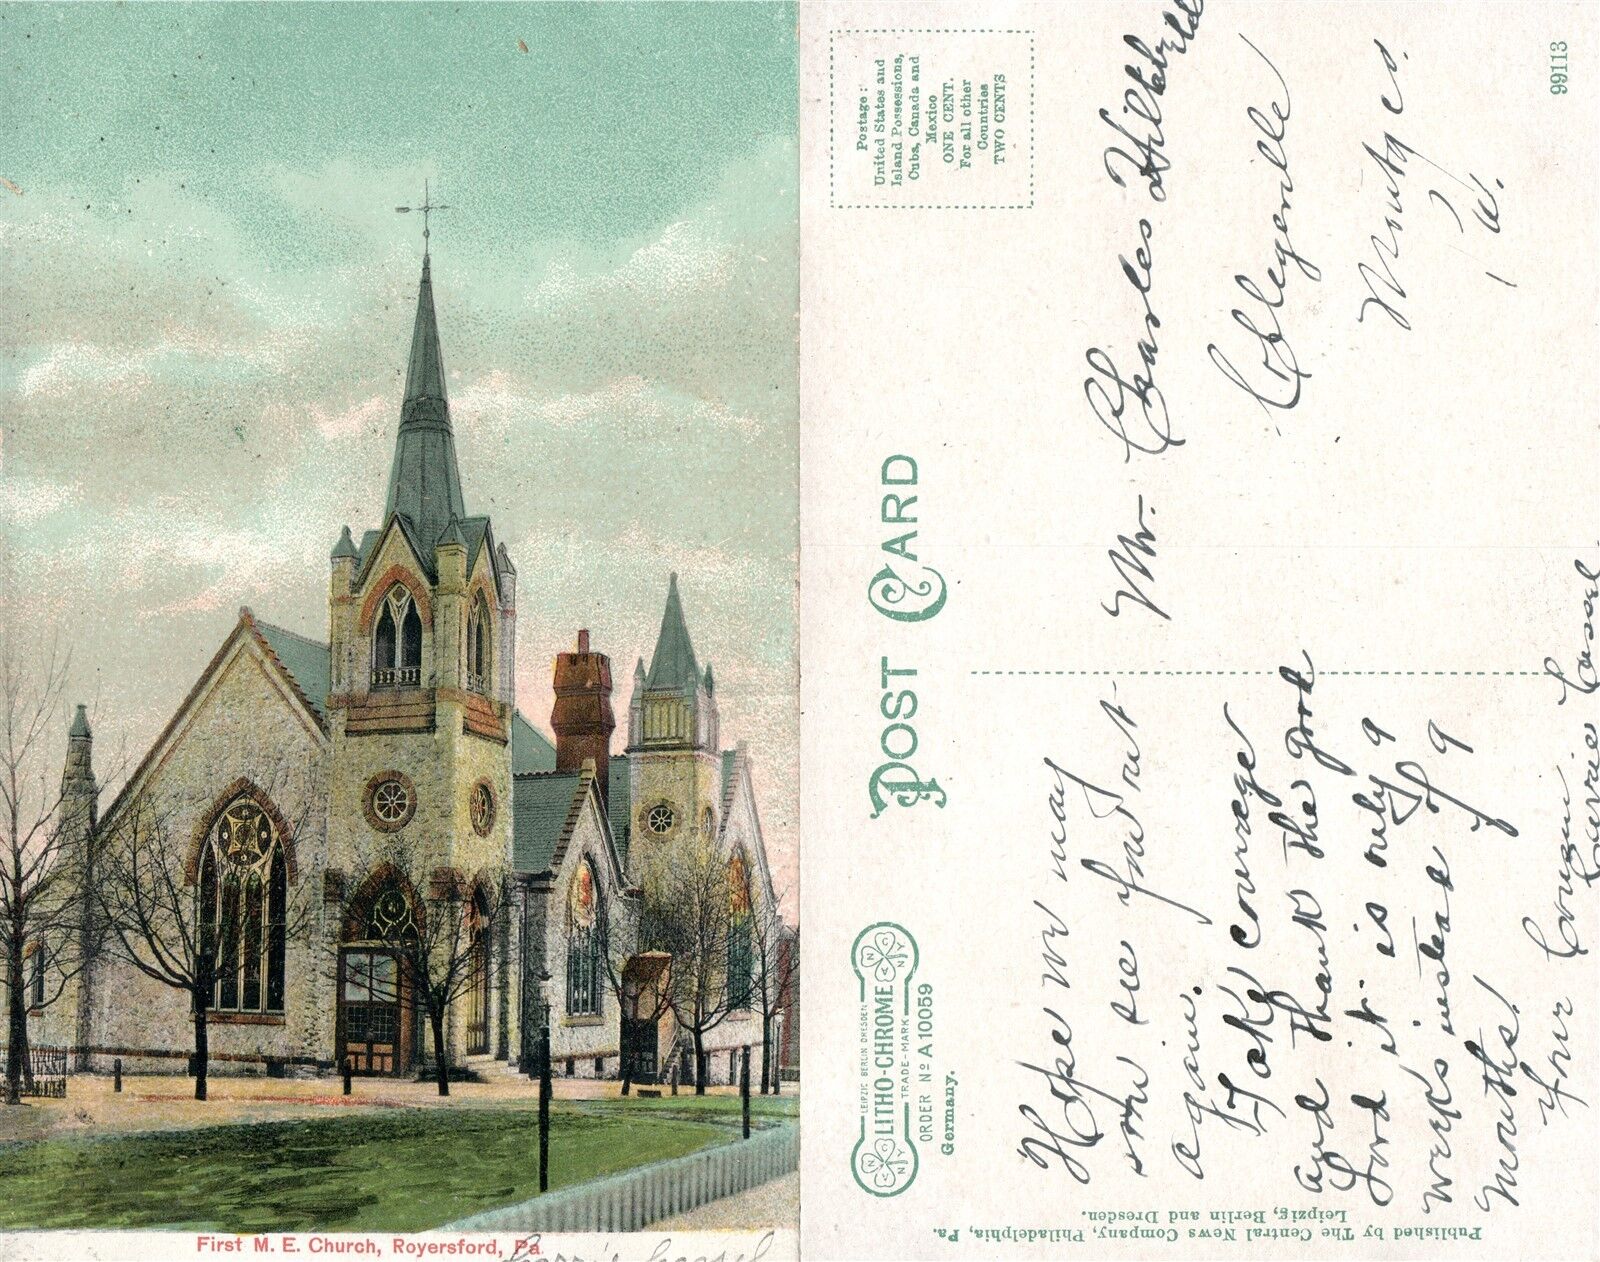 First M. E. Church, Royersford, Pa.
Carrie Cassel
POST CARD
Postage:
United States and
Island Possessions,
Cuba, Canada and
Mexico
ONE CENT.
For all other
Countries
TWO CENTS
99113
LEIPZIG BERLIN DRESDEN
LITHO-CHROME
TRADE-MARK
C N N Y
C N N Y
ORDER No A 10059
Germany.
Published by The Central News Company, Philadelphia, Pa.
Leipzig, Berlin and Dresden.
Mr. Charles
Collegeville
Montg co.
Pa.
Hope we may
soon see
again.
Take courage
and thank the good
Lord it is only 9
weeks instead of 9
months!
Your Cousin
Carrie Cassel